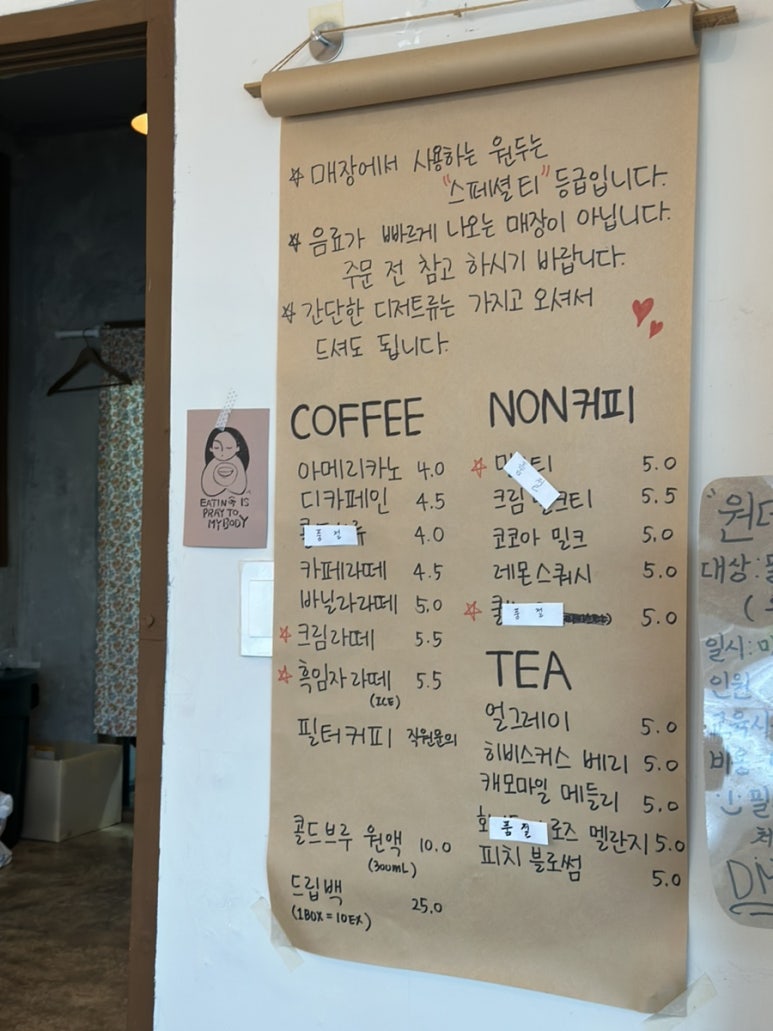 ☆ 매장에서 사용하는 원두는
"스페셜티" 등급입니다.
☆ 음료가 빠르게 나오는 매장이 아닙니다.
주문 전 참고 하시기 바랍니다.
☆ 간단한 디저트류는 가지고 오셔서
드셔도 됩니다.
COFFEE
아메리카노 4.0
디카페인 4.5
품절 4.0
카페라떼 4.5
바닐라라떼 5.0
☆ 크림라떼 5.5
☆ 흑임자라떼 5.5
(ICE)
필터커피 직원문의
콜드브루 원액 10.0
(300ML)
드립백 25.0
(1BOX = 10EX)
NON커피
☆ 품절 5.0
크림 밀크티 5.5
코코아 밀크 5.0
레몬스쿼시 5.0
☆ 품절 5.0
TEA
얼그레이 5.0
히비스커스 베리 5.0
캐모마일 메들리 5.0
품절 로즈 멜란지 5.0
피치 블로썸 5.0
EATING IS
PRAY TO
MY BODY
대상:
일시:
인원
DM